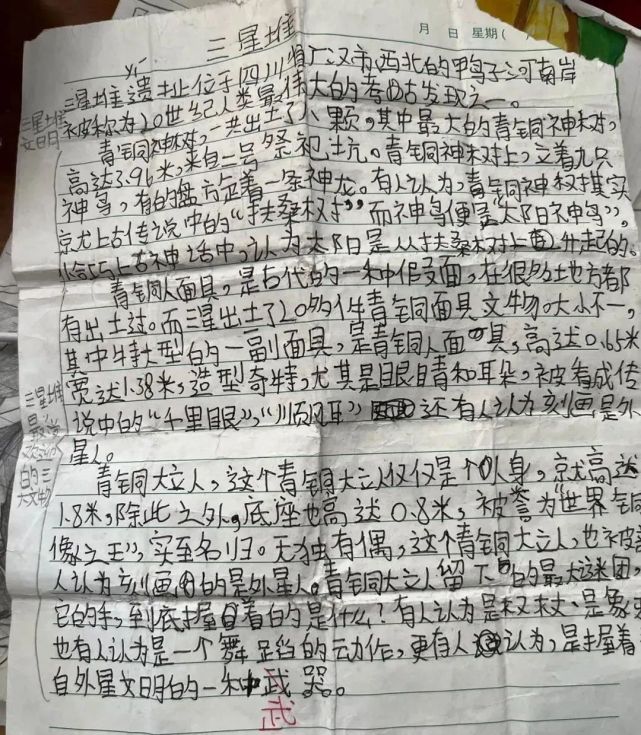 月 日 星期(
三星堆
yí
三星堆遗址位于四川省广汉市西北的鸭子河南岸
三星堆文明
被称为20世纪人类最伟大的考古发现之一。
青铜神树,一共出土了八颗,其中最大的青铜神树,
高达3.96米,来自二号祭祀坑。青铜神树上,立着九只
神鸟,有的盘亢定着一条神龙。有人认为,青铜神权其实
京尤上古传说中的“扶桑树”,而神鸟便是“太阳神鸟”,
上古神话中,认为太阳是从扶桑树上面升起的。
青铜人面具,是古代的一种假面,在很多地方都
有出土过。而三星出土了20多件青铜面具文物。大小不一,
其中特大型的一副面具,是青铜人面具,高达0.65米
宽达1.38米,造型奇特,尤其是眼睛和耳朵,被看成传
三星堆
的三大文物
说中的“千里眼”,“顺风耳”还有人认为刻画是外
星人。
青铜大立人,这个青铜大立人仅仅是个人身,就高达
1.8米,除此之外,底座也高达0.8米,被誉为“世界铜
像之王”,实至名归。无独有偶,这个青铜大立人,也被
人认为刻画的是外星人。青铜大立人留下的最大谜团,
它的手,到底握着的是什么?有人认为是权杖、是象
也有人认为是一个舞蹈的动作,更有人认为,是握着
自外星文明的一种武器。
武